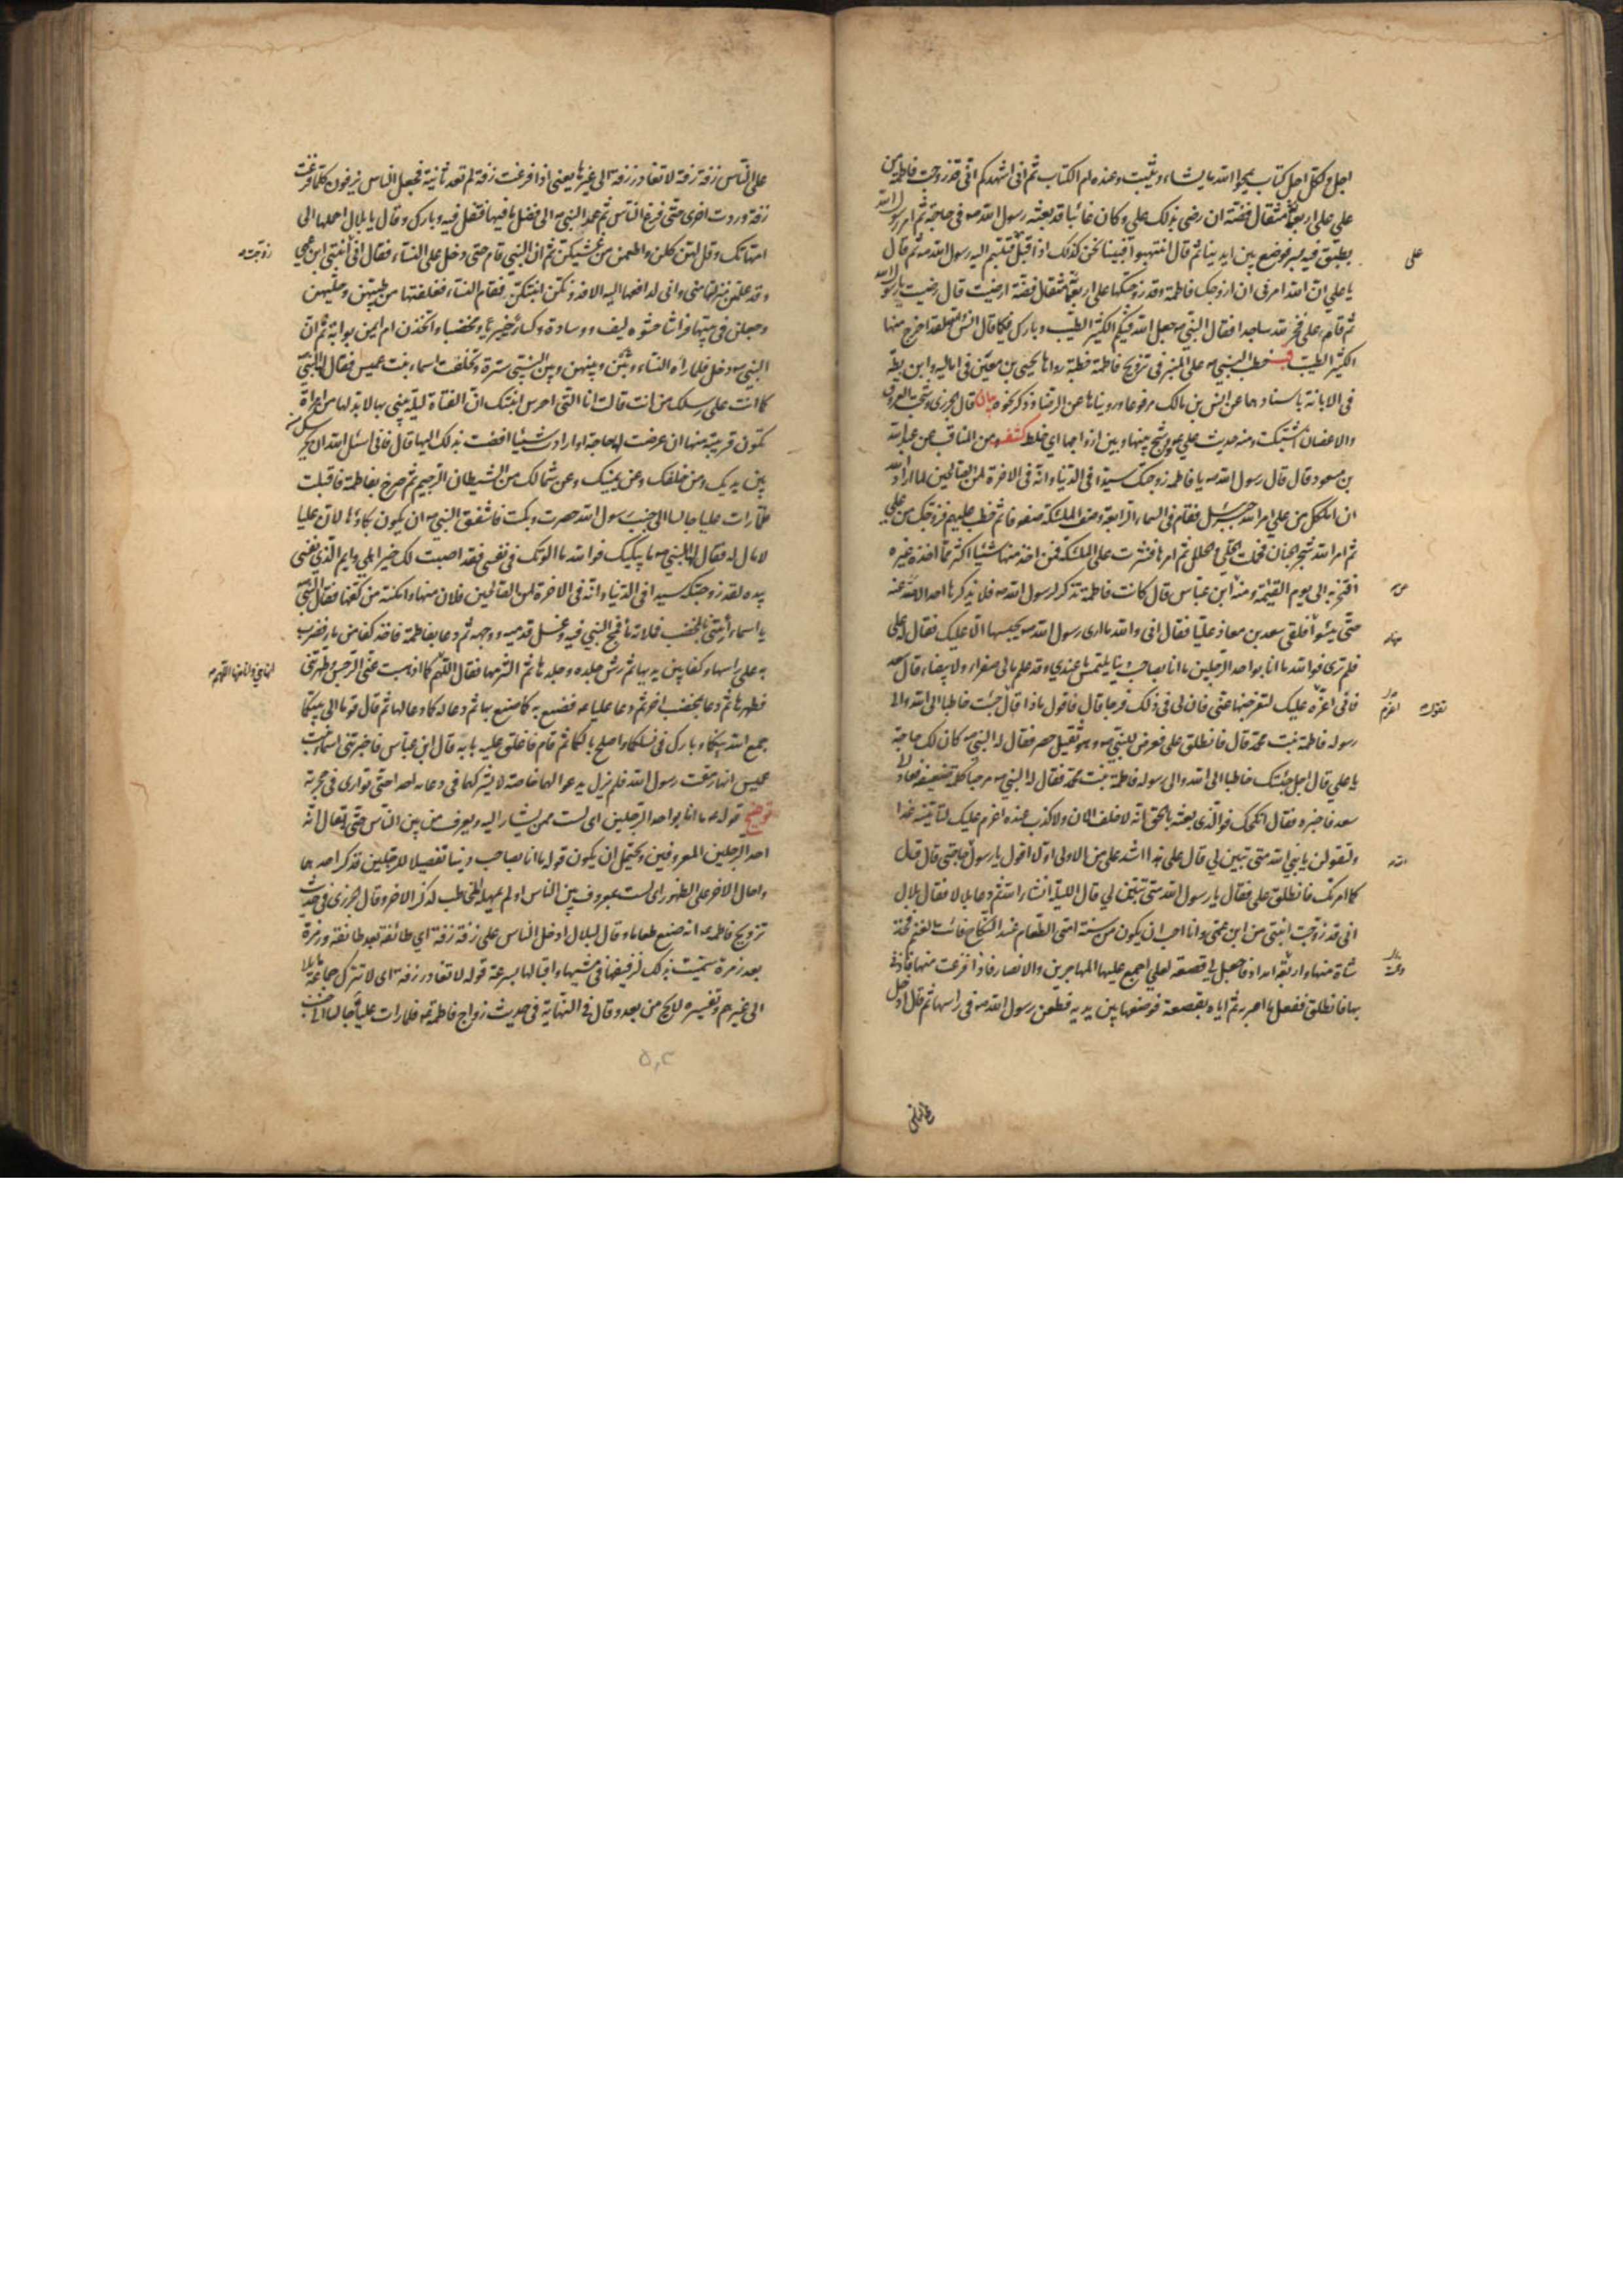 اجل ولكل اجل كتاب يمحو الله ما يشاء ويثبت وعنده ام الكتاب ثم اني اشهدكم اني قد زوجت فاطمة من
علي على اربعمائة مثقال فضة ان رضي بذلك علي وكان غائبا قد بعثه رسول الله ص في حاجة ثم امر رسول الله
بطبق فيه بسر فوضع بين ايدينا ثم قال انتهبوا فبينا نحن كذلك اذ اقبل علي فتبسم اليه رسول الله ص ثم قال
يا علي ان الله امرني ان ازوجك فاطمة وقد زوجتكها على اربعمائة مثقال فضة ارضيت قال رضيت يا رسول الله
ثم قام علي فخر لله ساجدا فقال النبي ص جعل الله فيكم الكثير الطيب وبارك فيكما قال انس والله لقد اخرج منها
الكثير الطيب قب خطب النبي ص على المنبر في تزويج فاطمة خطبة رواها يحيى بن معين في اماليه وابن بطة
في الابانة باسنادهما عن انس بن مالك مرفوعا ورويناها عن الرضا ع وذكر نحوه بيان قال الجزري وشجت العروق
والاغصان اشتبكت ومنه حديث علي ع ووشج بينها وبين ازواجها اي خلط كشف ومن المناقب عن عبد الله
بن مسعود قال قال رسول الله ص يا فاطمة زوجتك سيدا في الدنيا وانه في الاخرة لمن الصالحين لما اراد الله
ان املكك من علي امر الله جبرئيل فقام في السماء الرابعة وصف الملئكة صفوفا ثم خطب عليهم فزوجك من علي
ثم امر الله شجر الجنان فحملت الحلي والحلل ثم امرها فنثرت على الملئكة فمن اخذ منها شيئا اكثر مما اخذ غيره
افتخر به الى يوم القيمة ومنه ابن عباس قال كانت فاطمة تذكر لرسول الله ص فلا يذكرها احد الا صد عنه
حتى يئسوا منها فلقي سعد بن معاذ عليا فقال اني والله ما ارى رسول الله ص يحبسها الا عليك فقال له علي
فلم ترى فوالله ما انا بواحد الرجلين ما انا بصاحب دنيا يلتمس ما عندي وقد علم ما لي صفراء ولا بيضاء قال سعد
فاني اعزم عليك لتفرجنها عني فان لي في ذلك فرجا قال فاقول ماذا قال تقول جئت خاطبا الى الله والى
رسوله فاطمة بنت محمد قال فانطلق علي فعرض للنبي ص وهو ثقيل حصر فقال له النبي ص كان لك حاجة
يا علي قال اجل جئتك خاطبا الى الله والى رسوله فاطمة بنت محمد فقال له النبي ص مرحبا كلمة ضعيفة فعاد الى
سعد فاخبره فقال انكحك فوالذي بعثه بالحق انه لا خلف الان ولا كذب عنده اعزم عليك لتاتينه غدا
ولتقولن يا نبي الله متى تبين لي قال علي هذا اشد علي من الاولى اولا اقول يا رسول الله حاجتي قال قل
كما امرتك فانطلق علي فقال يا رسول الله متى تبنيني لي قال الليلة انشاء الله ثم دعا بلالا فقال يا بلال
اني قد زوجت ابنتي من ابن عمي وانا احب ان يكون من سنة امتي الطعام عند النكاح فات الغنم فخذ
شاة منها واربعة امداد فاجعل لي قصعة لعلي اجمع عليها المهاجرين والانصار فاذا فرغت منها فاذني
بها فانطلق ففعل ما امر به ثم اتاه بقصعة فوضعها بين يديه فطعن رسول الله ص في راسها ثم قال ادخل
علي الناس
على الناس زفة زفة لا تغادر زفة الى غيرها يعني اذا فرغت زفة لم تعد ثانية فجعل الناس يزفون كلما فرغت
زفة وردت اخرى حتى فرغ الناس ثم عمد النبي ص الى فضل ما فيها فتفل فيه وبارك وقال يا بلال احملها الى
امهاتك وقل لهن كلن واطعمن من غشيكن ثم ان النبي قام حتى دخل على النساء فقال اني زوجت ابنتي ابن عمي
وقد علمتن منزلتها مني واني لدافعها اليه الا فدونكن ابنتكن فقام النساء فغلفنها من طيبهن وحليهن
وجعلن في بيتها فراشا حشوه ليف ووسادة وكساء خيبريا ومخضبا واتخذن ام ايمن بوابة ثم ان
النبي ص دخل فلما راه النساء وثبن وبينهن وبين النبي سترة وتخلفت اسماء بنت عميس فقال لها النبي
كما انت على رسلك من انت قالت انا التي احرس ابنتك ان الفتاة ليلة يبنى بها لا بد لها من امراة
تكون قريبة منها ان عرضت لها حاجة او ارادت شيئا افضت بذلك اليها قال فاني اسئل الله ان يحرسك من
بين يديك ومن خلفك وعن يمينك وعن شمالك من الشيطان الرجيم ثم صرخ بفاطمة فاقبلت
فلما رات عليا جالسا الى جنب رسول الله حصرت وبكت فاشفق النبي ص ان يكون بكاؤها لان عليا
لا مال له فقال لها النبي ص ما يبكيك فوالله ما الوتك في نفسي فقد اصبت لك خير اهلي وايم الذي نفسي
بيده لقد زوجتك سيدا في الدنيا وانه في الاخرة لمن الصالحين فلان منها وامكنته من كفها فقال النبي
يا اسماء ائتيني بالمخضب فملاته ماء فمج النبي فيه وغسل قدميه ووجهه ثم دعا بفاطمة فاخذ كفا من ماء فضرب
به على راسها وكفا بين يديها ثم رش جلده وجلدها ثم التزمها فقال اللهم انها مني وانا منها اللهم كما اذهبت عني الرجس وطهرتني
فطهرها ثم دعا بمخضب اخر ثم دعا عليا ع فصنع به كما صنع بها ثم دعا له كما دعا لها ثم قال قوما الى بيتكما
جمع الله بينكما وبارك في نسلكما واصلح بالكما ثم قام فاغلق عليه بابه قال ابن عباس فاخبرتني اسماء بنت
عميس انها رمقت رسول الله فلم يزل يدعو لهما خاصة لا يشركهما في دعائه احدا حتى توارى في حجرته
توضيح قوله ع ما انا بواحد الرجلين اي لست ممن يشار اليه ويعرف من بين الناس حتى يقال انه
احد الرجلين المعروفين ويحتمل ان يكون قوله ما انا بصاحب دنيا تفصيلا للرجلين فذكر احدهما
واحال الاخر على الظهور اي لست بمعروف بين الناس او لم يمهله المخاطب لذكر الاخر وقال الجزري في حديث
تزويج فاطمة ع انه صنع طعاما وقال لبلال ادخل الناس علي زفة زفة اي طائفة بعد طائفة وزمرة
بعد زمرة سميت بذلك لزفيفها في مشيها واقبالها بسرعة قوله لا تغادر زفة اي لا تترك جماعة مائلا
الى غيرهم وتفسيره لايح من بعد وقال في النهاية في حديث زواج فاطمة ع فلما رات عليا جالسا الى جنب